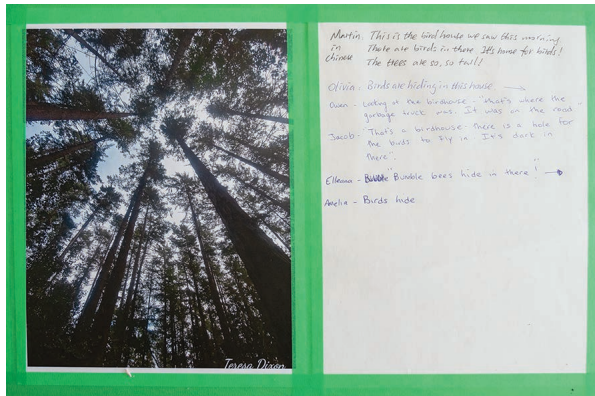 Teresa Dixon
Martin. This is the bird house we saw this morning
in There are birds in there It's home for birds!
Chinese The trees are so, so tall!
Olivia - Birds are hiding in this house →
Owen - Looking at the birdhouse - "that's where the
garbage truck was. It was on the road -
Jacob - That's a birdhouse - there is a hole for
the birds to fly in It's dark in
there".
Elleana - Bumble bees hide in there" →
Amelia - Birds hide